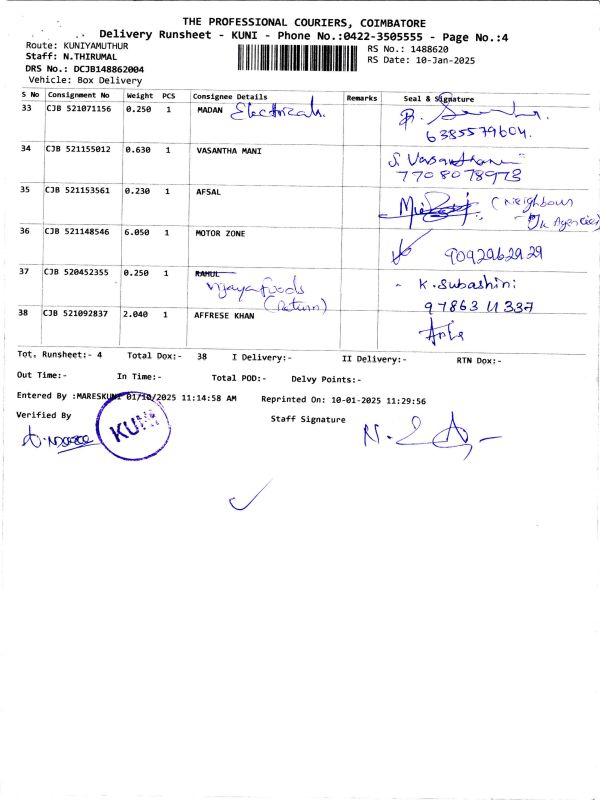 THE PROFESSIONAL COURIERS, COIMBATORE
Delivery Runsheet - KUNI - Phone No.:0422-3505555 - Page No.:4
Route: KUNIYAMUTHUR
RS No.: 1488620
Staff: N.THIRUMAL
RS Date: 10-Jan-2025
DRS No.: DCJB148862004
Vehicle: Box Delivery
S No Consignment No Weight PCS Consignee Details Remarks Seal & Signature
33 CJB 521071156 0.250 1 MADAN Electricals.
6385579604.
34 CJB 521155012 0.630 1 VASANTHA MANI S. Vasanthamani
7708078973
35 CJB 521153561 0.230 1 AFSAL (Neighbour
Agencies)
36 CJB 521148546 6.050 1 MOTOR ZONE
9092962929
37 CJB 520452355 0.250 1 RAHUL - K. Subashini
Vijaya foods
(Return) 97863 11337
38 CJB 521092837 2.040 1 AFFRESE KHAN
Tot. Runsheet:- 4 Total Dox:- 38 I Delivery:- II Delivery:- RTN Dox:-
Out Time:- In Time:- Total POD:- Delvy Points:-
Entered By :MARESKUNI 01/10/2025 11:14:58 AM Reprinted On: 10-01-2025 11:29:56
Verified By Staff Signature
KUNI